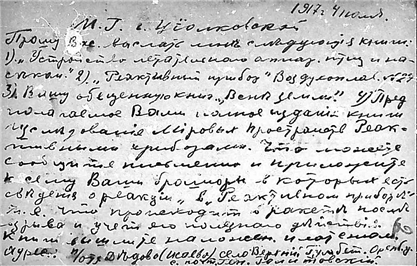 1917 г. 4 июля.
М. Г. г. Циолковской
Прошу Вас выслать мне следующ. книги:
1) "Устройство летательного аппар. птиц и на-
секом." 2) "Реактивный прибор" Воздухоплав. №
3) Вашу обещенную книг. "Вне земли" 4) Пред
полагаемое Вами полное издание книги
Исследование Мировых пространств Реак-
тивными приборами. Что можете
сообщите письменно и приложите
к сему Ваши брошюры в которых есть
сведения о реакции, "в Реактивном приборе"
т. е. что происходит в ракете после
взрыва и учет его полезного действия
Книги вышлите налож.
село Верхний Оренбур.